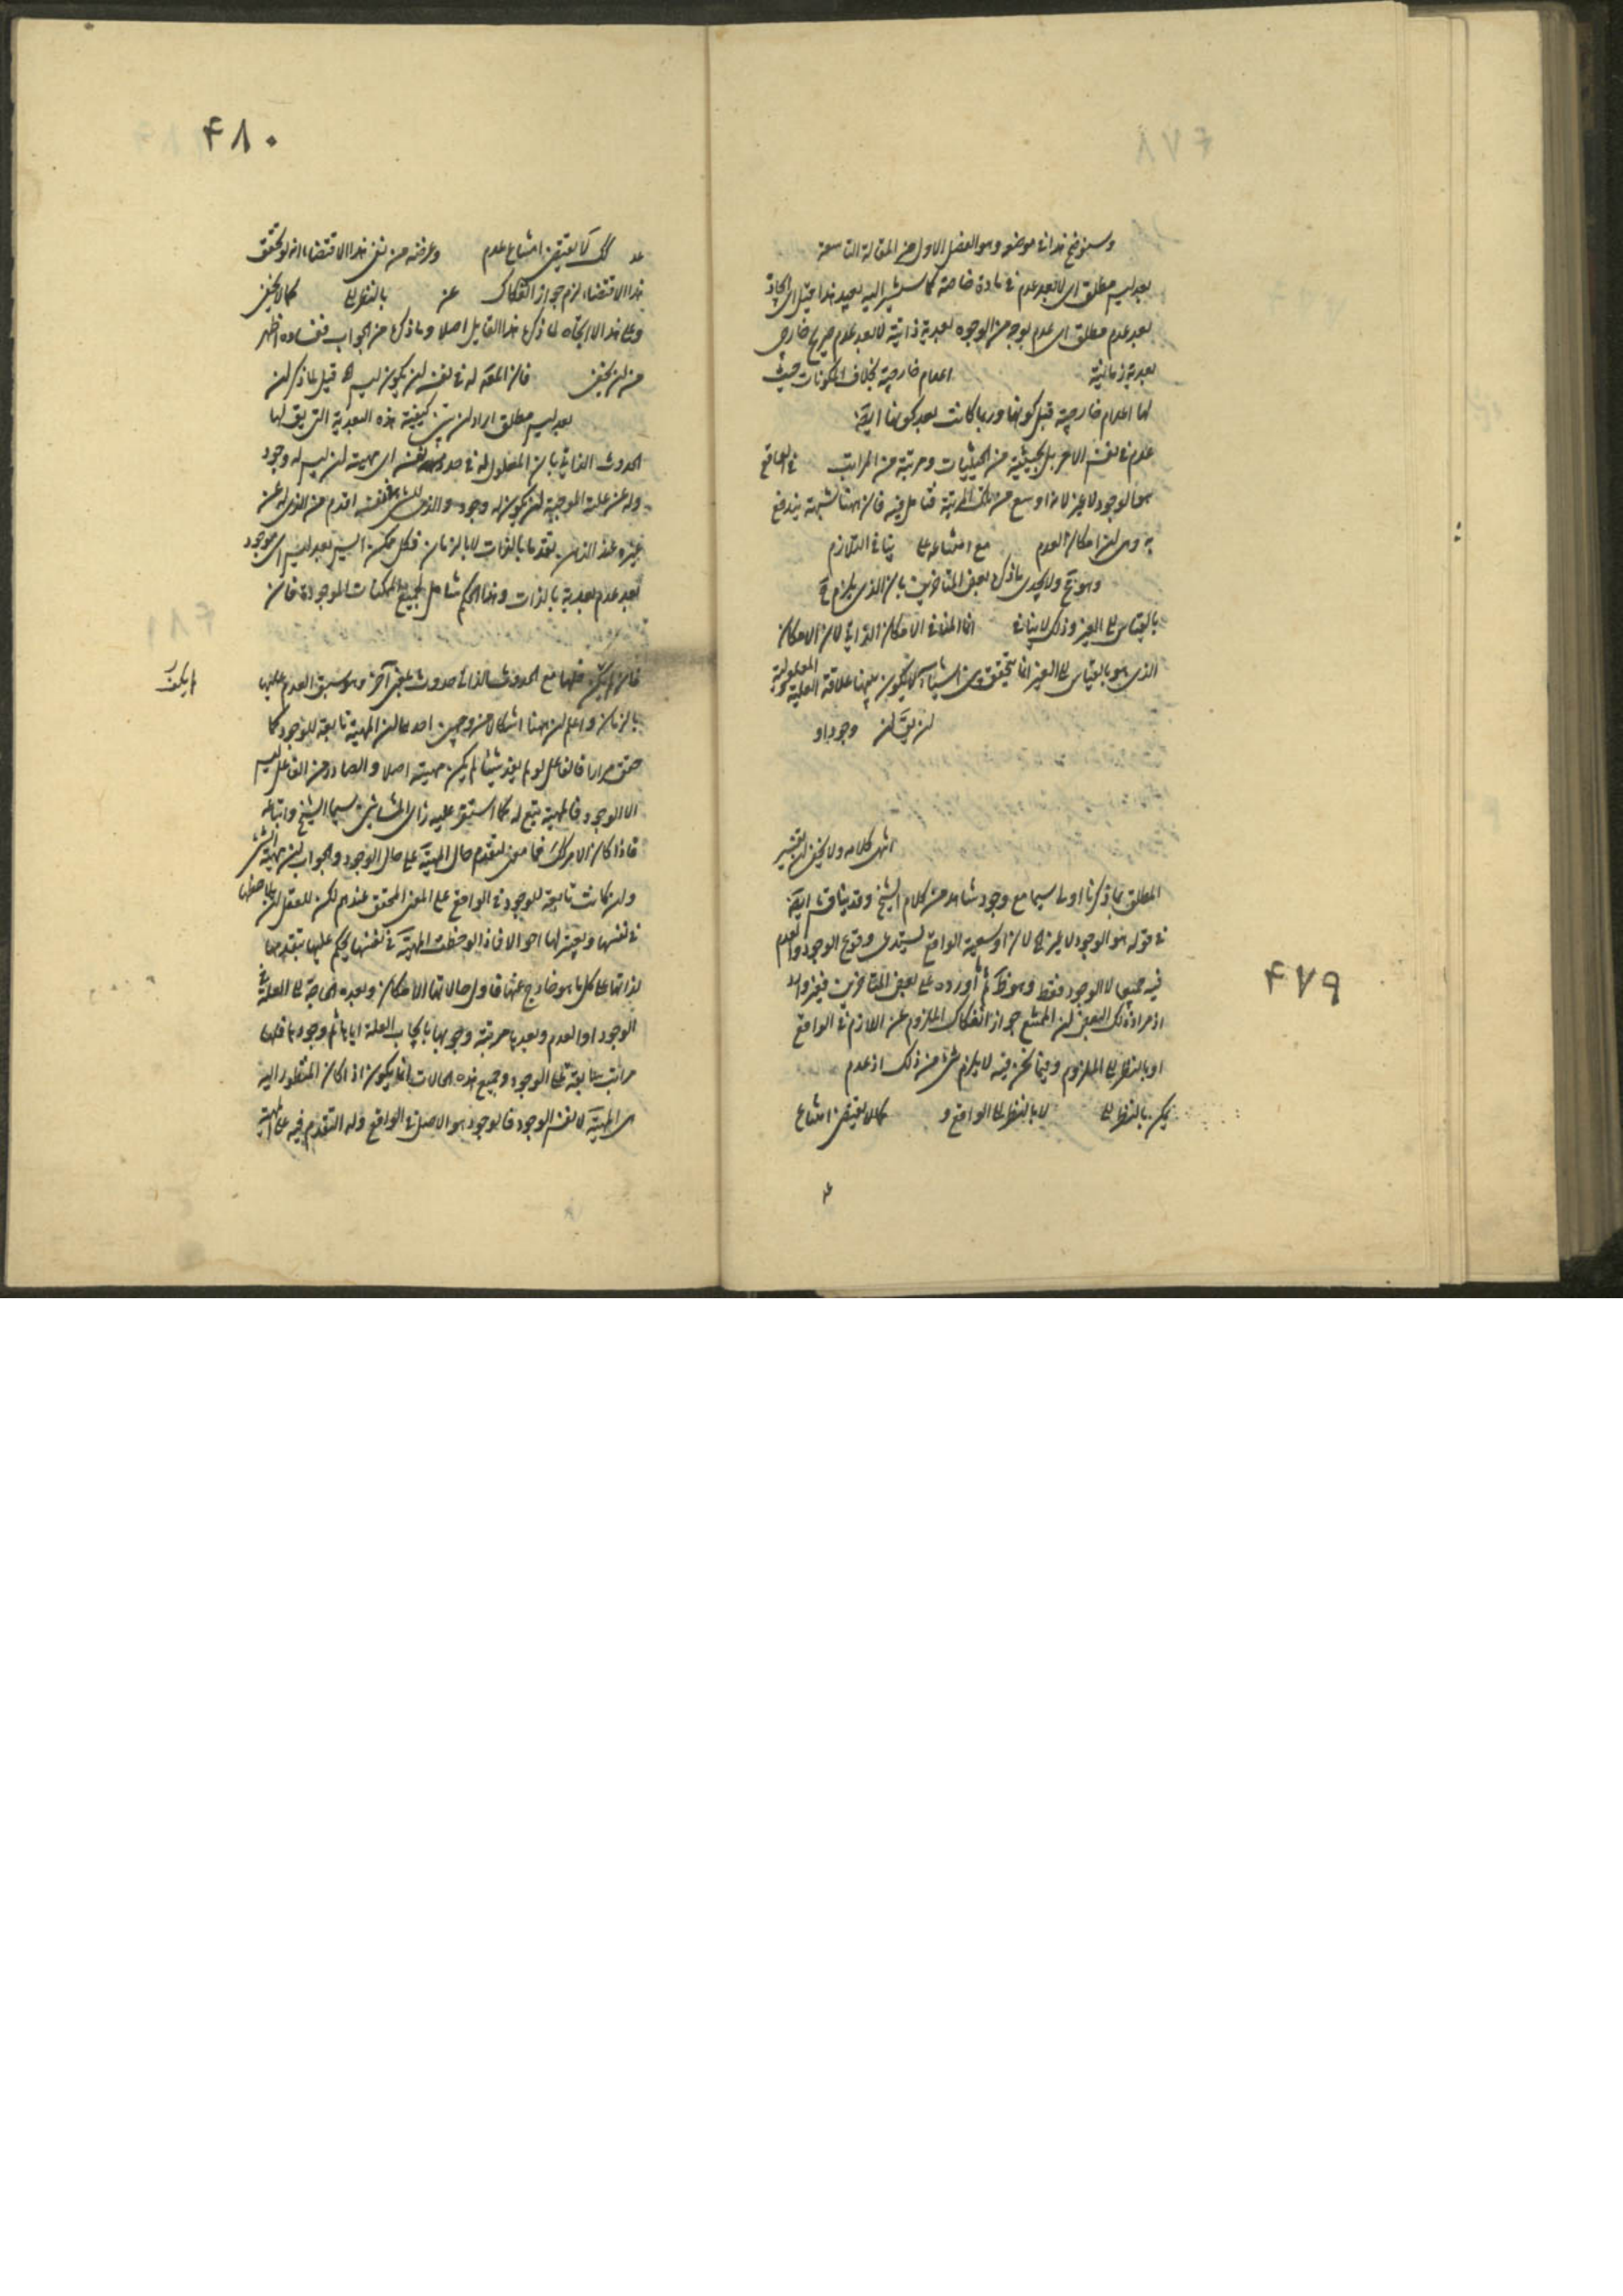 وسنوضح هذا في موضعه وهو الفصل الاول من المقالة التاسعة
بعد ليس مطلق اى لا بعد عدم في مادة خاصة كما سيشير اليه بعيد هذا
بعد عدم مطلق اى عدم بوجه من الوجوه بعدية ذاتية لا بعد عدم صريح خارجى
بعدية زمانية اعدام خارجية بخلاف المكونات حيث
لها اعدام خارجية قبل كونها وربما كانت بعد كونها ايضا
عدم في نفس الامر بل بحيثية من الحيثيات ومرتبة من المراتب في الواقع
هو الوجود لا غير لانه اوسع من تلك المرتبة فتامل فيه فان ههنا شبهة يندفع
به وهى ان امكان العدم مع امتناعه ينافى التلازم
وهو مح ولا يجدى ما ذكره بعض المتاخرين بان الذى يلزم
بالقياس الى الغير وذلك لا ينافى انما المنافى الامكان الذاتى لان الامكان
الذى هو بالقياس الى الغير انما يتحقق بين اشياء لا يكون بينهما علاقة العلية والمعلولية
لن يق لن وجود او
انتهى كلامه ولا يخفى ان تفسير
المطلق بما ذكرنا اولى سيما مع وجود شاهد من كلام الشيخ وقد يناقش ايضا
في قوله هو الوجود لا غير لان اوسعية الواقع يستدعى وقوع الوجود والعدم
فيه جميعا لا الوجود فقط وهو ظ ثم ما اورده على بعض المتاخرين فغير وارد
اذ مراد ذلك البعض ان الممتنع جواز انفكاك الملزوم عن اللازم في الواقع
او بالنظر الى الملزوم وفيما نحن فيه لا يلزم شئ من ذلك اذ عدم
يمكن بالنظر الى لا بالنظر الى الواقع و كما لا يقتضى امتناع
عد
۴۷۹
۴۸۰
عد كك لا يقتضى امتناع عدم وغرضه من نفى هذا الاقتضاء انه لو تحقق
هذا الاقتضاء لزم جواز انفكاك عن بالنظر الى كما لا يخفى
وعلى هذا لا اتجاه لما ذكره هذا القايل اصلا وما ذكره من الجواب ففساده اظهر
من ان يخفى فان المعلول له في نفسه ان يكون ليس اه قيل لما ذكر ان
بعد ليس مطلق اراد ان يبين كيفية هذه البعدية التى يق لها
الحدوث الذاتى بان المعلول له في حد نفسه اى مهيته ان ليس له وجود
وله عن علته الموجبة ان يكون له وجود والذى للشئ في نفسه اقدم من الذى له عن
غيره عند الذهن تقدما بالذات لا بالزمان فكل ممكن ايس بعد ليس اى موجود
بعد عدم بعدية بالذات وهذا الحكم شامل لجميع الممكنات الموجودة فان
فان فلها مع الحدوث الذاتى حدوث بمعنى آخر وهو سبق العدم عليها
بالزمان واعلم ان ههنا اشكالا من وجهين احدهما ان المهية تابعة للوجود كما
حقق مرارا فالفاعل لو لم يفد شيئا لم يكن مهية اصلا والصادر من الفاعل ليس
الا الوجود فالمهية يتبع له كما استقر عليه راى المشائين سيما الشيخ واتباعه
فاذا كان الامر كك فما معنى لتقدم حال المهية على حال الوجود والجواب ان مهية الشئ
وان كانت تابعة للوجود في الواقع على المعنى المحقق عندهم لكن للعقل ان يلاحظها
في نفسها ويعتبر لها احوالا فاذا لوحظت المهية في نفسها يحكم عليها بتقدمها
لذاتها على كل ما هو خارج عنها فاول حالاتها الامكان وبعده الحاجة الى العلة في
الوجود او العدم وبعدها مرتبة وجوبها بايجاب العلة اياها ثم وجودها فلها
مراتب سابقة على الوجود وجميع هذه الحالات انما يكون اذا كان المنظور اليه
هى المهية لا نفس الوجود فالوجود هو الاصل في الواقع وله التقدم فيه على المهية